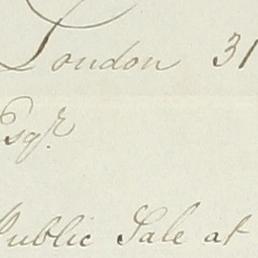 London 31
Esqr.
Public Sale at